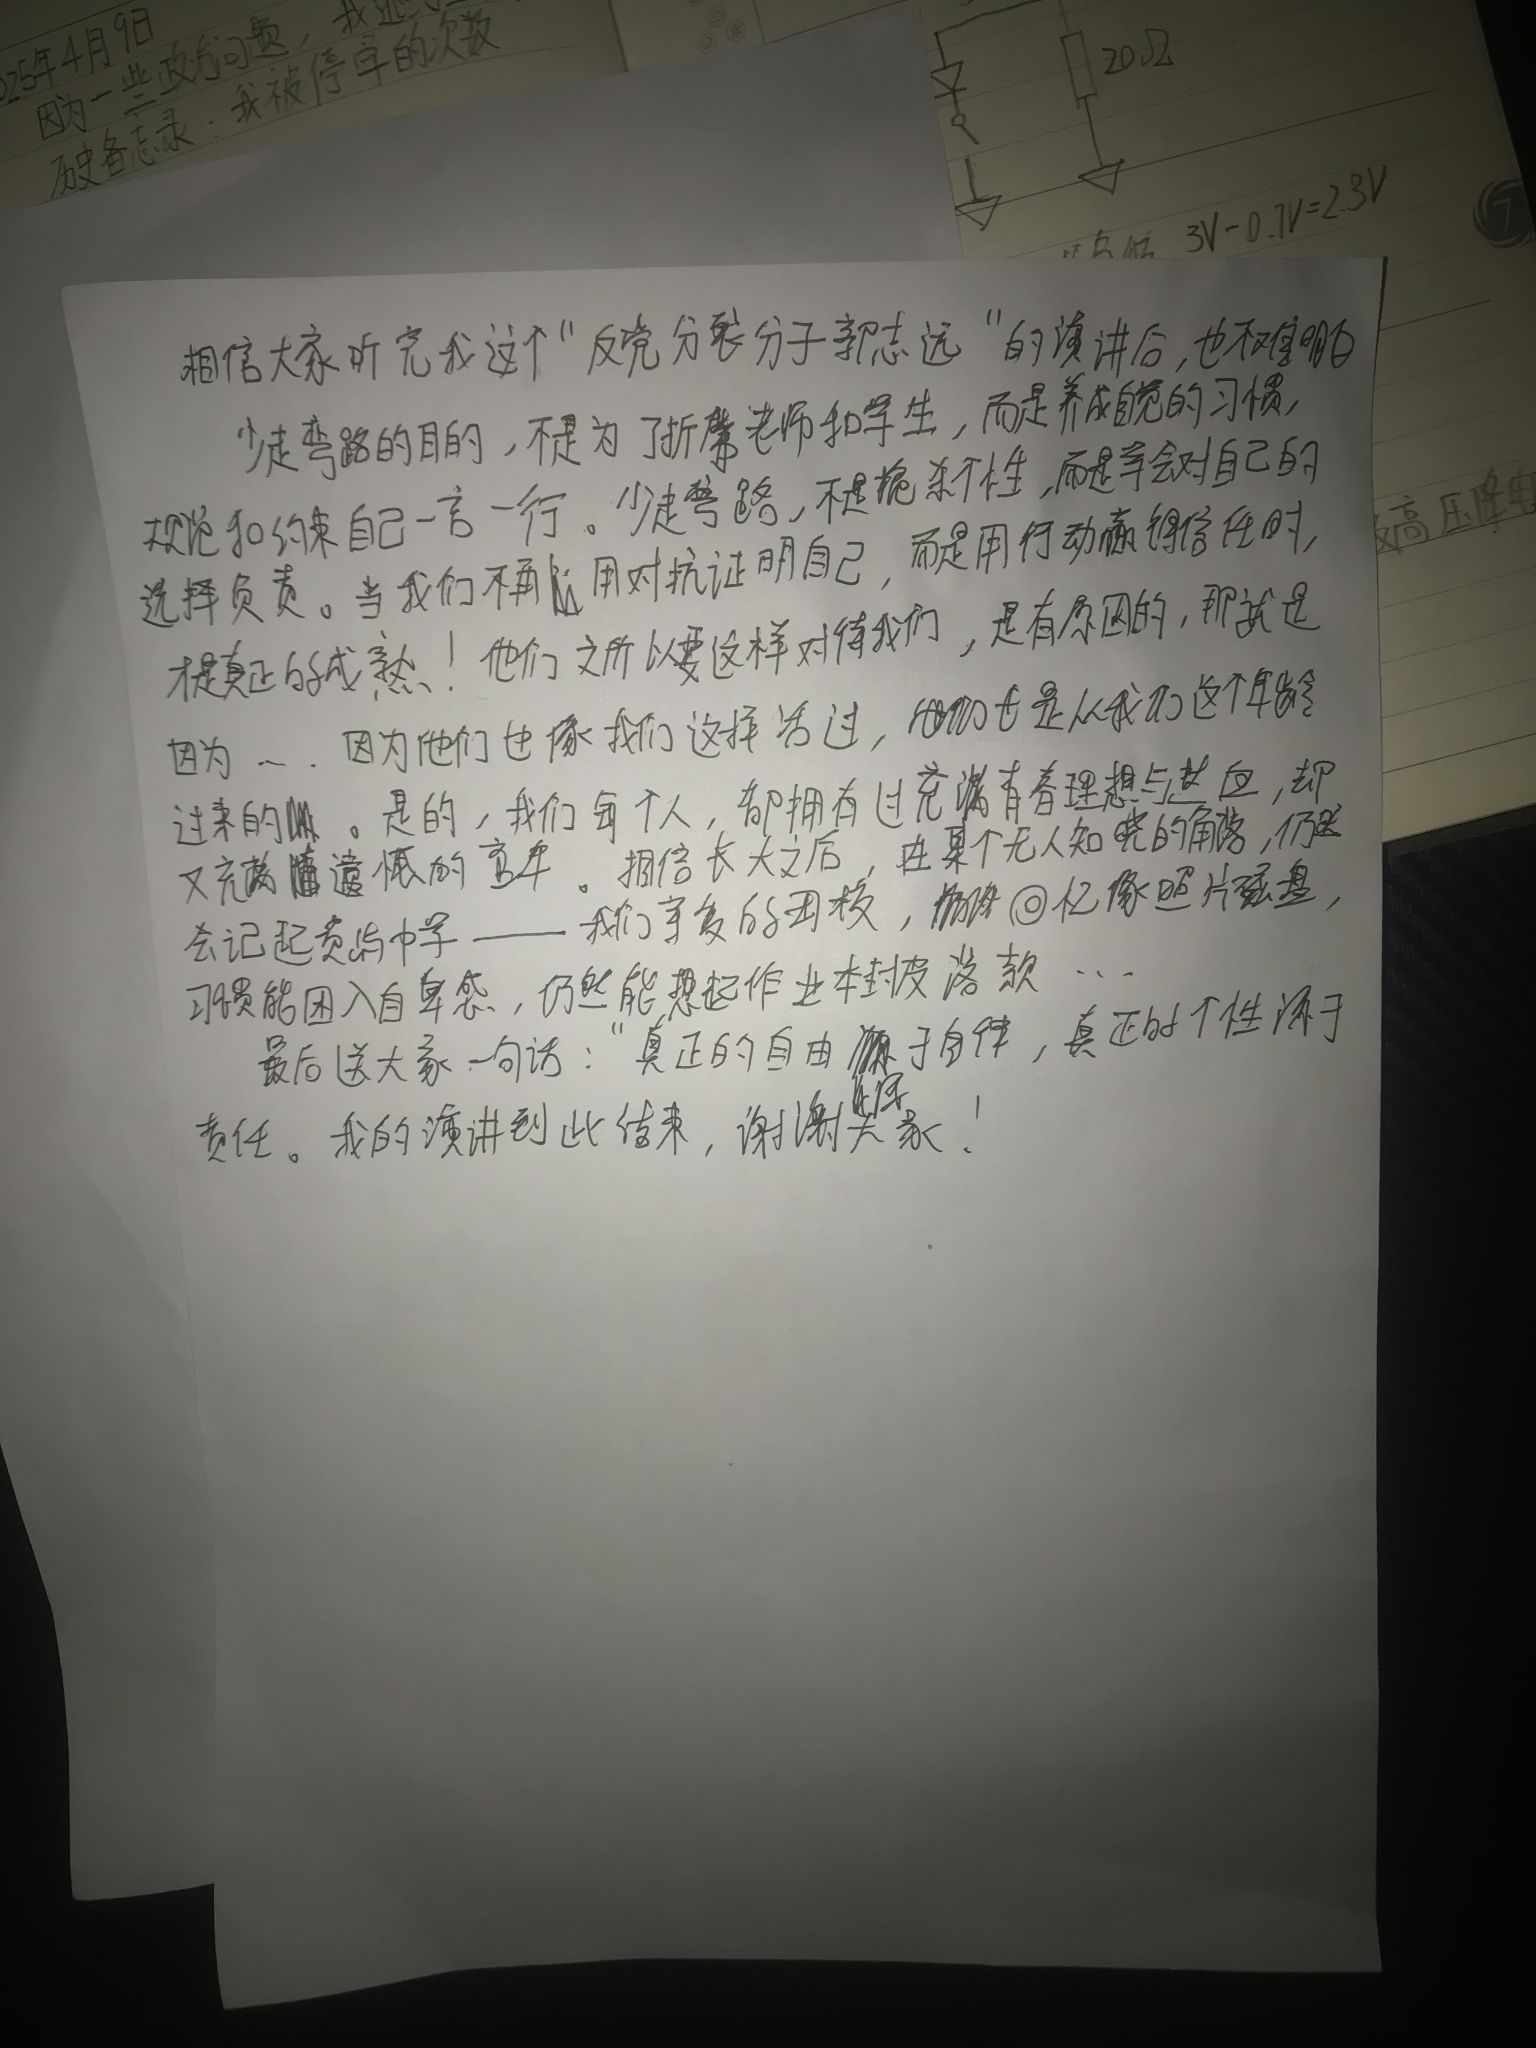 025年4月9日
因为一些政治问题，我
历史备忘录：我被停学的次数
20Ω
3V-0.7V=2.3V
高压降
相信大家听完我这个"反党分裂分子郭志远"的演讲后，也不难明白
少走弯路的目的，不是为了折磨老师和学生，而是养成自觉的习惯，
规范和约束自己一言一行。少走弯路，不是扼杀个性，而是学会对自己的
选择负责。当我们不再用对抗证明自己，而是用行动赢得信任时，
才是真正的成熟！他们之所以要这样对待我们，是有原因的，那就是
因为…．因为他们也像我们这样活过，他们也是从我们这个年龄
过来的。是的，我们每个人，都拥有过充满青春理想与热血，却
又充满遗憾的童年。相信长大之后，在某个无人知晓的角落，仍然
会记起贵屿中学——我们亲爱的母校，回忆像照片磁盘，
习惯能困入自卑感，仍然能想起作业本封皮落款…
最后送大家一句话："真正的自由源于自律，真正的个性源于
责任。我的演讲到此结束，谢谢大家！